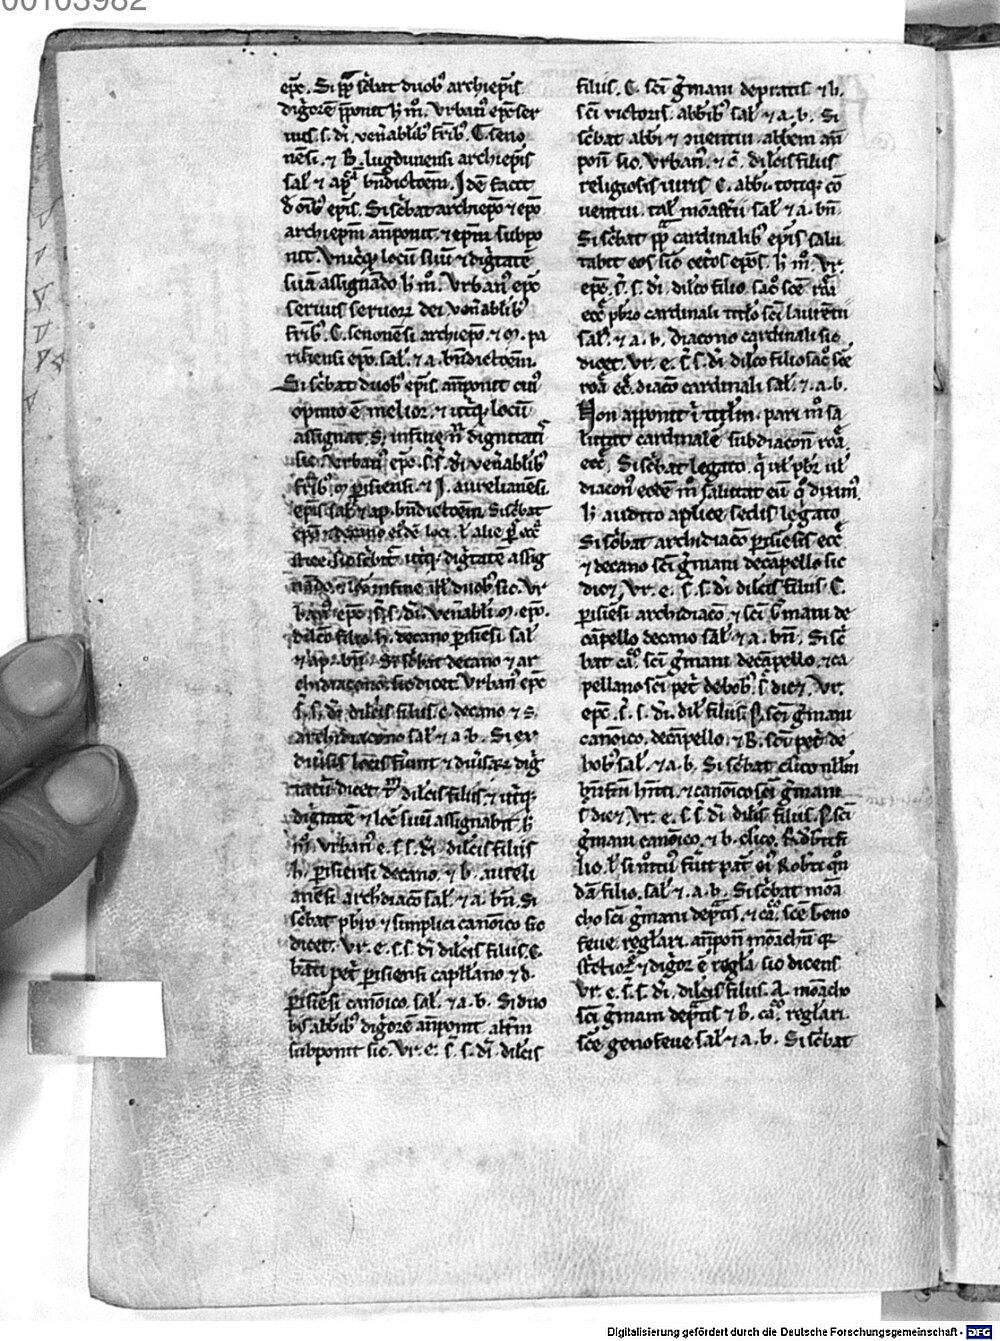 00103982
ep̄c. Si pp̄ sc̄bat duob᷒ archiep̄is
digōrē p̄ponit h̄ m̊. Vrban᷒ ep̄c ser
uus. s. dī. ven̄ablib᷒ fr̄ib᷒. G. seno
nēsi. ⁊ B. lugdunensi archiep̄is
sal̄ ⁊ ap̄ bn̄dictōem. Idē facit
d̄ oīb᷒ ep̄is. Si sc̄bat archiep̄o ⁊ ep̄o
archiep̄m an̄ponit. ⁊ ep̄m subpo
nit. Vnicuiq̨ locū suū ⁊ dig̊tatē
suā assignādo h̄ m̊. Vrban᷒ ep̄c
seruus seruorū dei ven̄ablib᷒
fr̄ib᷒. G. senonēsi archiep̄o. ⁊ M. pa
risiensi ep̄o. sal̄. ⁊ a. bn̄dictōem.
Si sc̄bat duob᷒ ep̄is. an̄ponit cui᷒
opinio ē melior. ⁊ utiq̨ locū
assignat. S; in fine n̄ dignitati᷒
sic. Vrban᷒ ep̄c. s. s. dī ven̄ablib᷒
fr̄ib᷒ M. p̄isiensi. ⁊ J. aurelianēsi.
ep̄is sal̄ ⁊ ap̄. bn̄dictōem. Si sc̄bat
ep̄o ⁊ decano ei᷒dē loci. l̄ alic̄ p̄ ecc̄
utiq̨ dig̊tatē assig
duob᷒ sic. Vr
ban᷒ ep̄c. s. s. dī. ven̄abli M. ep̄o.
dilc̄o filio. h. decano p̄isiēsi sal̄
⁊ ap̄. bn̄. Si sc̄bat decano ⁊ ar
chidiacono. sic dicet. Vrban᷒ ep̄c
s. s. dī. dilc̄is filiis. G. decano ⁊ S.
archidiacono sal̄ ⁊ a. b. Si ex
diu̓sis locis s̄unt ⁊ diu̓sar̄ dig̊
nitatū dicet dilc̄is filiis. ⁊ utiq̨
dig̊tatē ⁊ locū suū assignabit h̄
m̊. Vrban᷒ e. s. s. dī. dilc̄is filiis
h. p̄isiensi decano. ⁊ b. aureli
anēsi. archidiacō sal̄. ⁊ a. bn̄. Si
sc̄bat p̄bro ⁊ simplici canōico sic
dicet. Vr. e. s. s. dī dilc̄is filiis. G.
bāti pet̓ p̄isiensi capll̄ano ⁊ d.
p̄isiēsi canōico. sal̄. ⁊ a. b. Si duo
b᷒ abbib᷒ digōrē an̄ponit. alt̓m
subponit sic. Vr. e. s. s. dī. dilc̄is
filiis. G. sc̄i g̓mani de pratis ⁊ h.
sc̄i victoris. abbib᷒ sal̄ ⁊ a. b. Si
sc̄bat abbi ⁊ ꝯuentui. abbem an̄
pōit sic. Vrban᷒. ⁊ c̄. dilc̄is filiis
religiosis uiris G. abbi. totiq̨ cō
uentui. tal̄ mōast̓ii sal̄ ⁊ a. bn̄.
Si sc̄bat pp̄ cardinalib᷒ ep̄is salu
tabit eos sic cet̓os ep̄os. h̄ m̊. Vr.
ep̄c. s. s. dī. dilc̄o filio. sac̊ sc̄e roā
ecc̄ p̄bro cardinali titl̄o sc̄i laurētii
sal̄. ⁊ a. b. diacono cardinali sic
dicet. Vr. e. s. s. dī dilc̄o filio sac̊ sc̄e
roā ec̄c. diacō cardinali sal̄. ⁊. a. b.
Non apponit̓ titl̄m. pari m̊ sa
lutat cardinalē subdiacon̄ roā.
ecc̄. Si sc̄bat legato. q̓ ul̄ p̄br ul̄
diacon᷒ eodē m̊ salutat eū q̊ dixim᷒.
h̄ addito aplice sedis legato
Si sc̄bat archidiacō p̄isiēsis ecc̄
⁊ decano sc̄i g̓mani decāpello sic
dic̓. Vr. e. s. s. dī. dilc̄is filiis G.
p̄isiēsi. archidiacō. ⁊ sc̄i g̓mani de
cāpello decano sal̄ ⁊ a. bn̄. Si sc̄
bat cā̊. sc̄i g̓mani decāpello. ⁊ ca
pellano sc̄i pet̓ de bob᷒. s̄ dic̓. Vr.
ep̄c. s. s. dī. dil̄ filiis P. sc̄i g̓mani
canōico. decāpello. ⁊ B. sc̄i pet̓ de
bob᷒ sal̄. ⁊ a. b. Si sc̄bat cl̓ico null̄m
bn̄fm̄ hn̄ti. ⁊ canōico sc̄i g̓mani
s̄ dic̓. Vr. e. s. s. dī. dilc̄is filiis. P. sc̄i
g̓mani canōico. ⁊ b. cl̓ico. Rob̓ti fi
lio. l̄ si mr̄tu᷒ fiuit pat̓ ei᷒ Rob̓ti q̊n
dā filio. sal̄ ⁊. a. b. Si sc̄bat moā
cho sc̄i g̓mani de p̄tis. ⁊ cā̊. sc̄e geno
feue. reg̓lari. an̄pon̄ moāchū q̨
st̓ctior̄ ⁊ digōr ē regl̄a sic dicens
Vr. e. s. s. dī. dilc̄is filiis. A. moācho
sc̄i g̓mani de p̄tis ⁊ B. cā̊. reg̓lari.
sc̄e genofeue sal̄ ⁊ a. b. Si sc̄bat
Digitalisierung gefördert durch die Deutsche Forschungsgemeinschaft - DFG